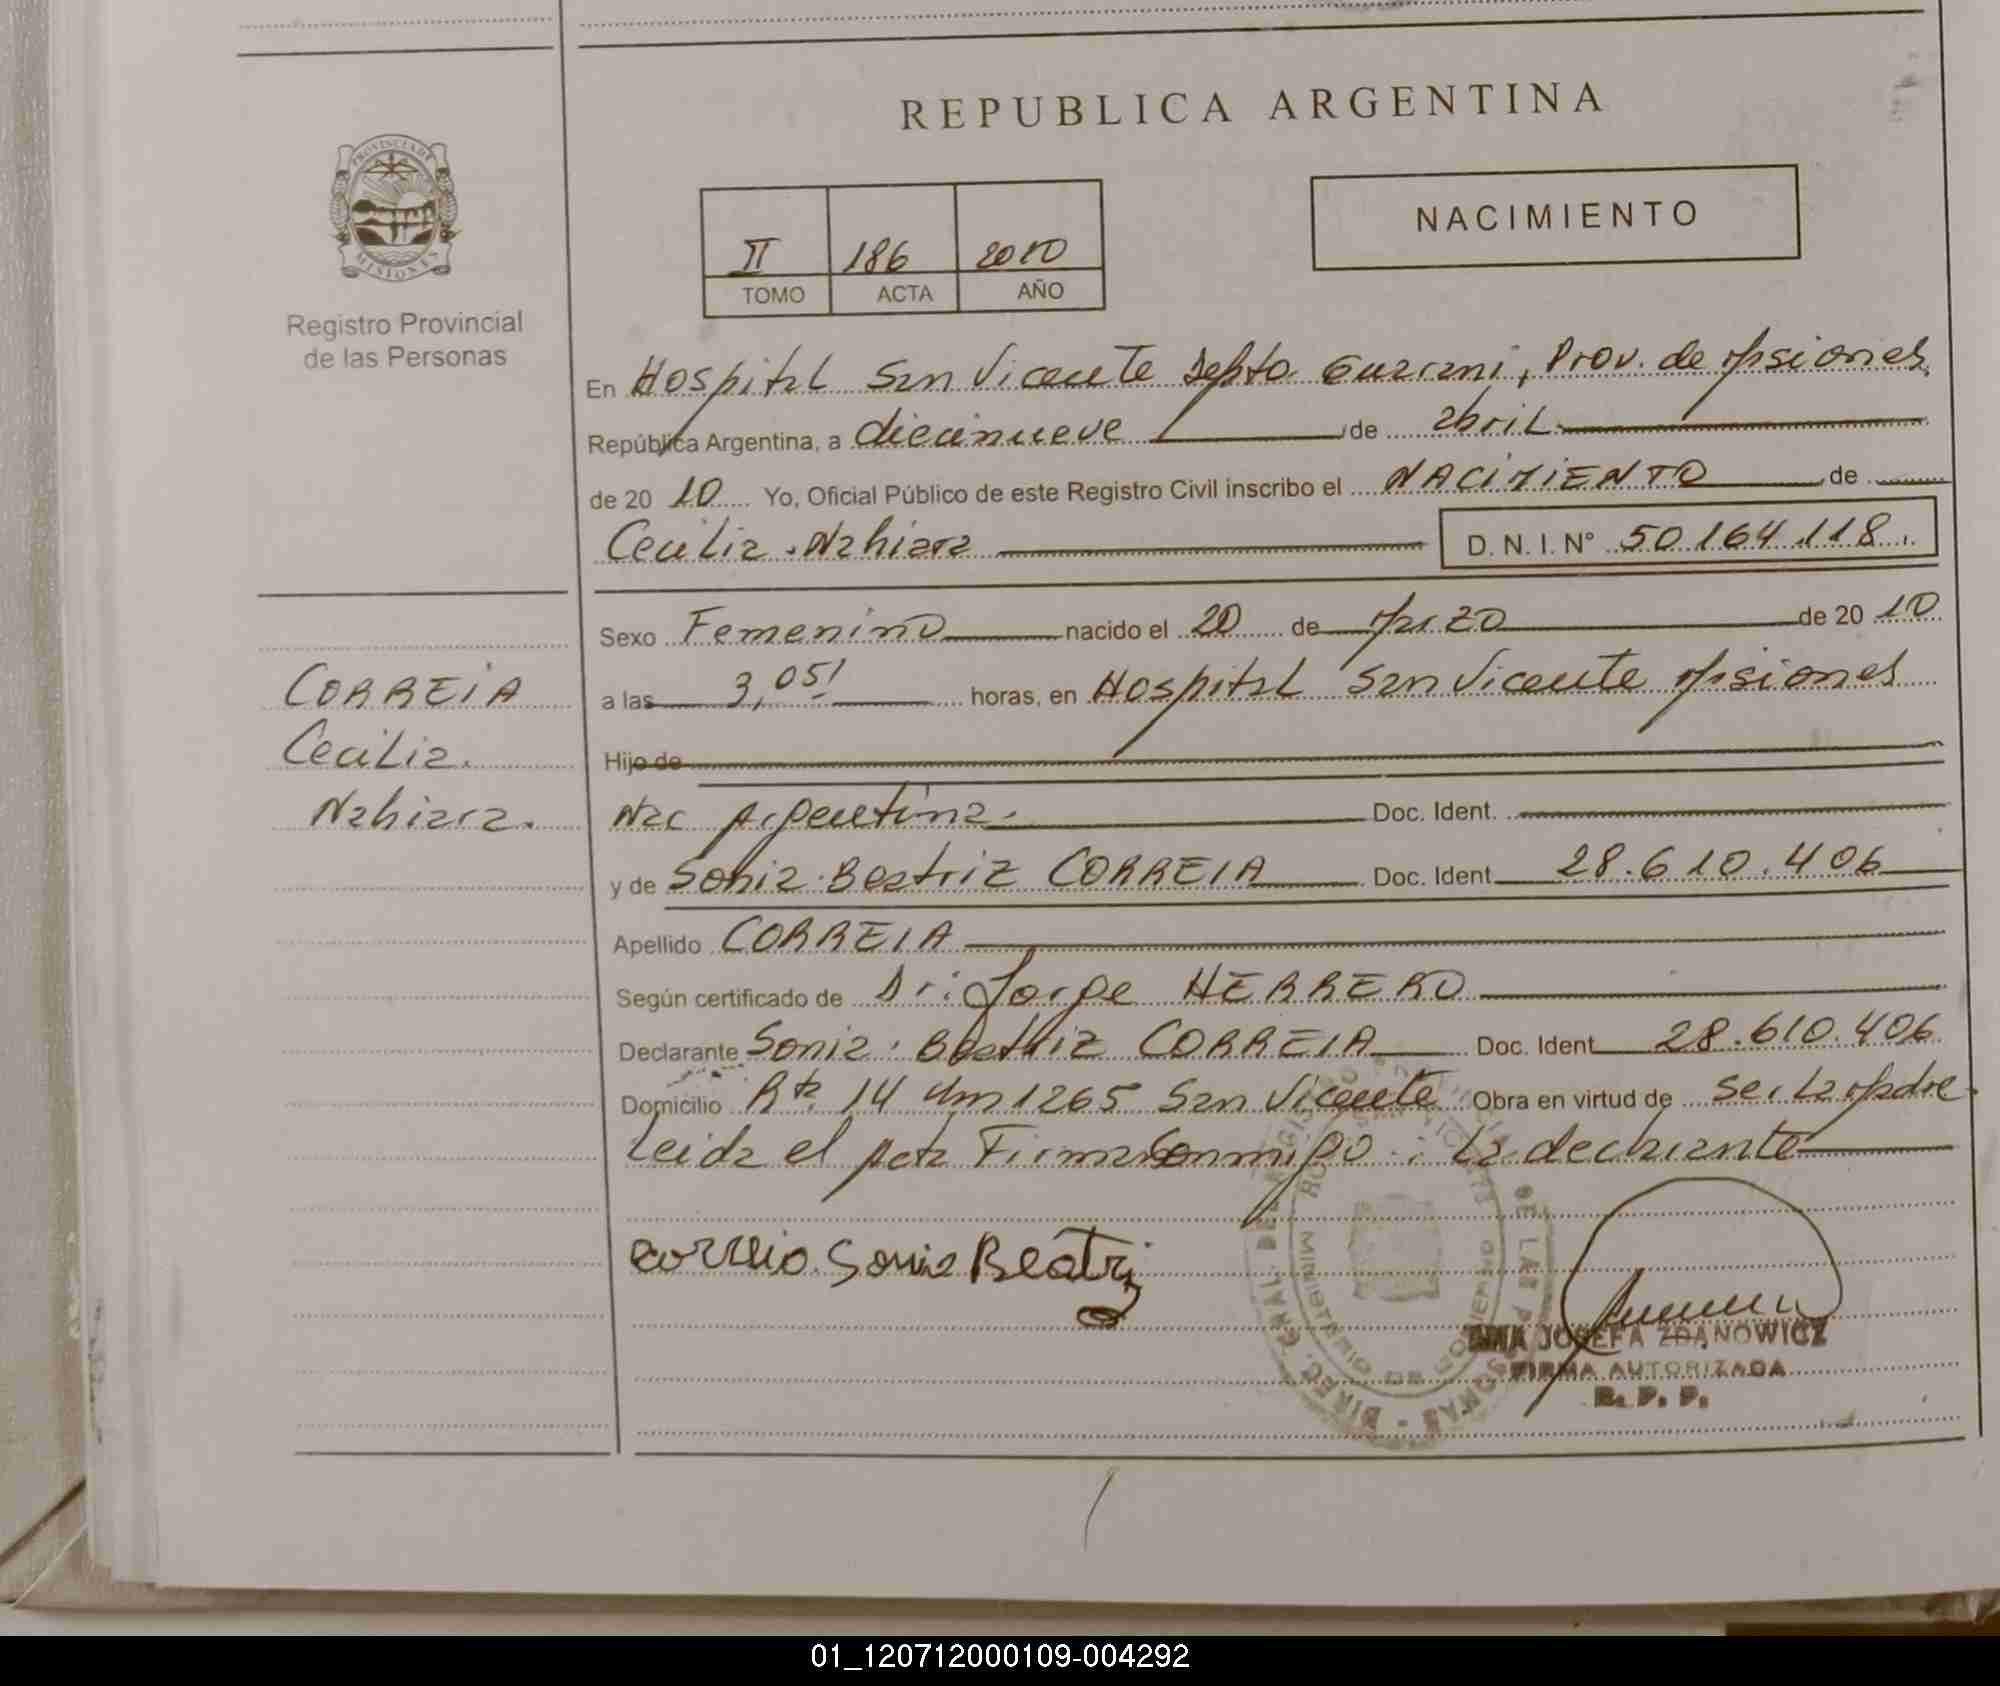 REPUBLICA ARGENTINA
PROVINCIA DE
MISIONES
Registro Provincial
de las Personas
NACIMIENTO
II 186 2010
TOMO ACTA AÑO
En Hospital San Vicente Depto. Guarani, Prov. de Misiones
República Argentina, a diecinueve de abril
de 20 10 Yo, Oficial Público de este Registro Civil inscribo el NACIMIENTO de
Cecilia Nahiara D. N. I. N° 50.164.118.
Sexo Femenino nacido el 20 de Marzo de 20 10
a las 3,05 horas, en Hospital San Vicente Misiones
Hijo de
Nac Argentina. Doc. Ident.
y de Sonia Beatriz CORREIA Doc. Ident 28.610.406
Apellido CORREIA
Según certificado de Dr: Jorge HERRERO
Declarante Sonia Beatriz CORREIA Doc. Ident 28.610.406
Domicilio Rta 14 Km 1265 San Vicente Obra en virtud de Ser La Madre
Leida el Acta Firma Conmigo : La declarante
CORREIA
Cecilia.
Nahiara.
Correia Sonia Beatriz
DIREC. GRAL. DEL REGISTRO DE LAS PERSONAS
MINISTERIO DE GOBIERNO
ANA JOSEFA ZDANOWICZ
FIRMA AUTORIZADA
R. P. P.
01_120712000109-004292